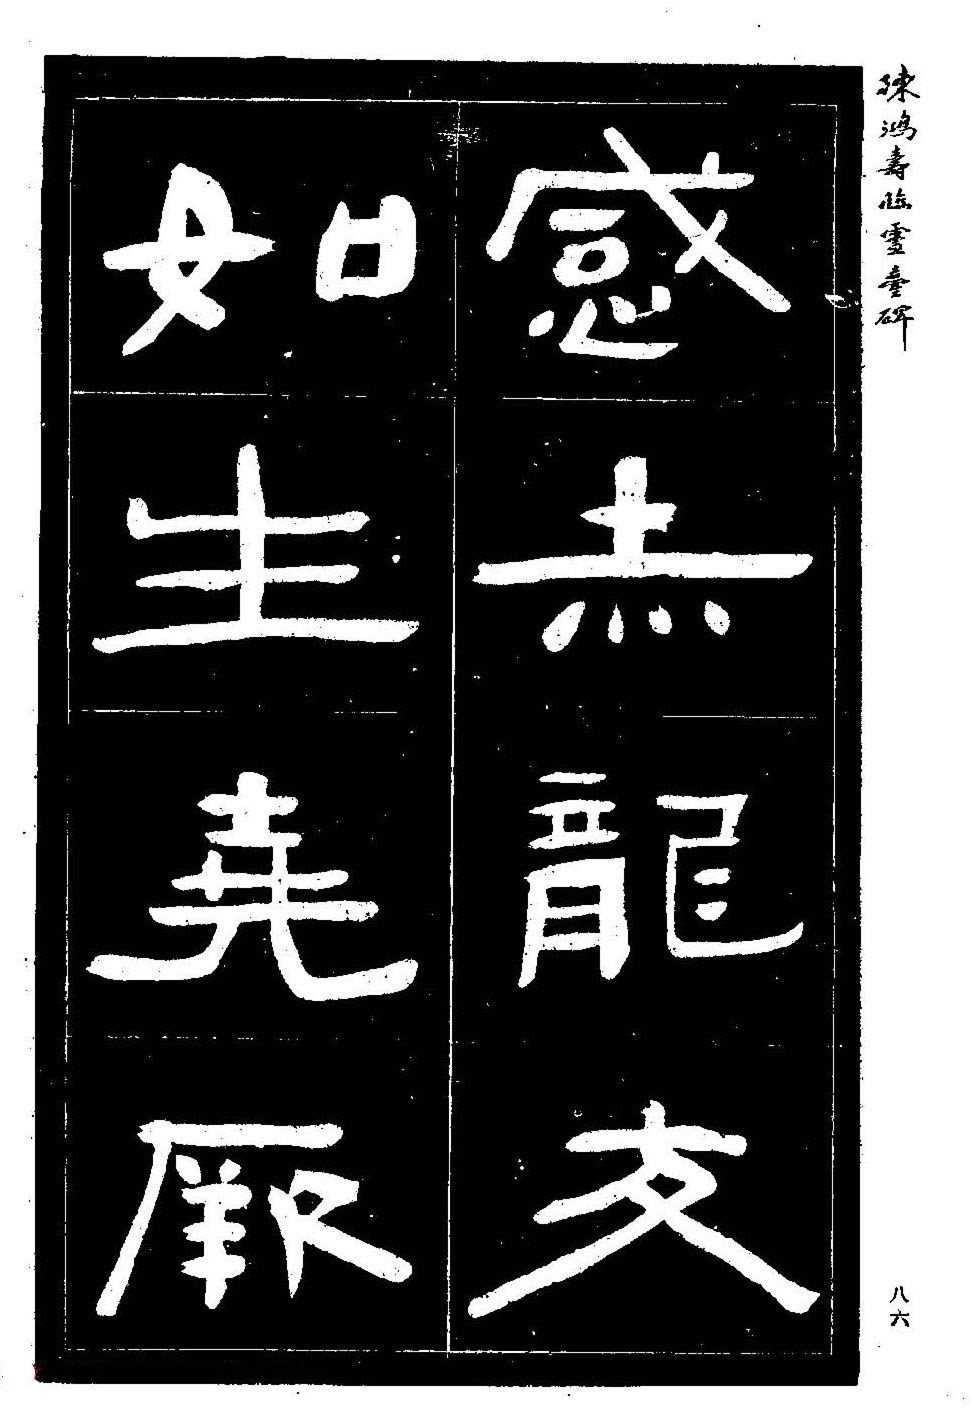 陳鴻壽臨靈臺碑
感赤龍交
如生堯厥
八六